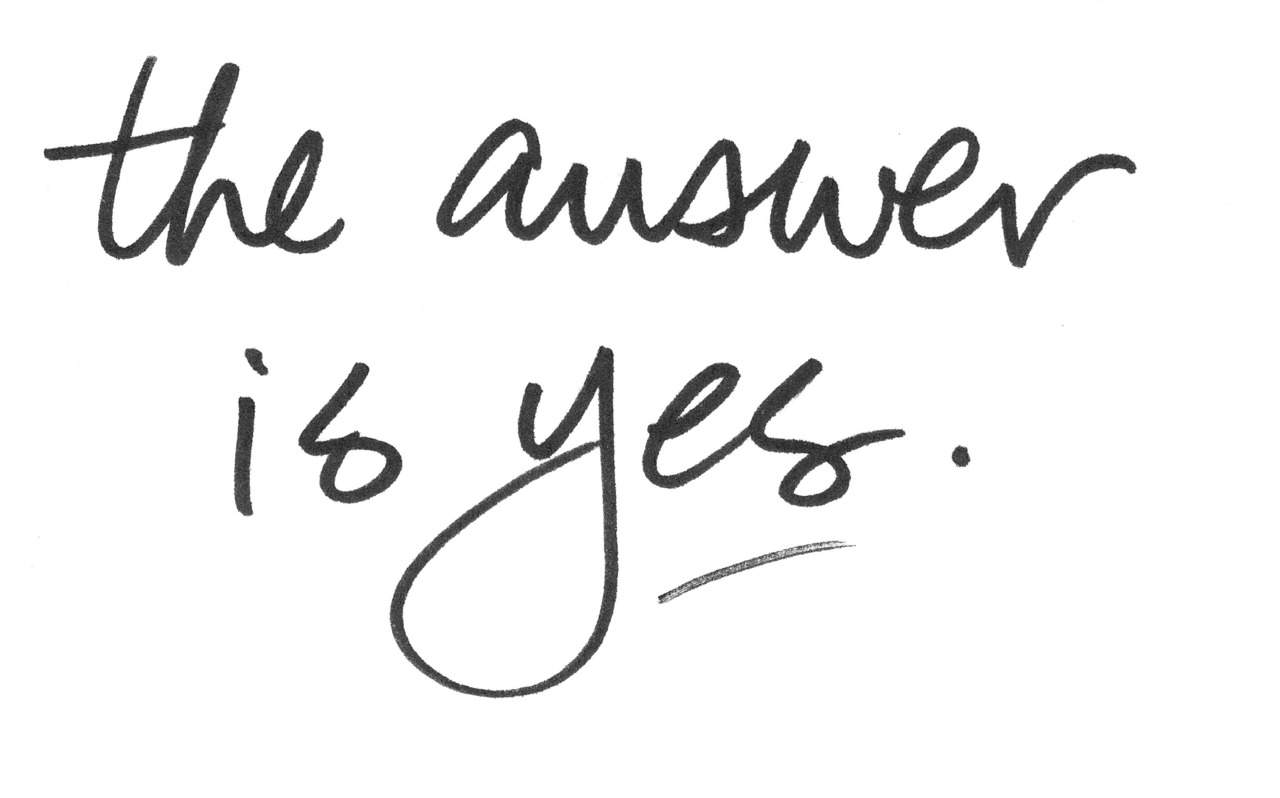 the answer
is yes.